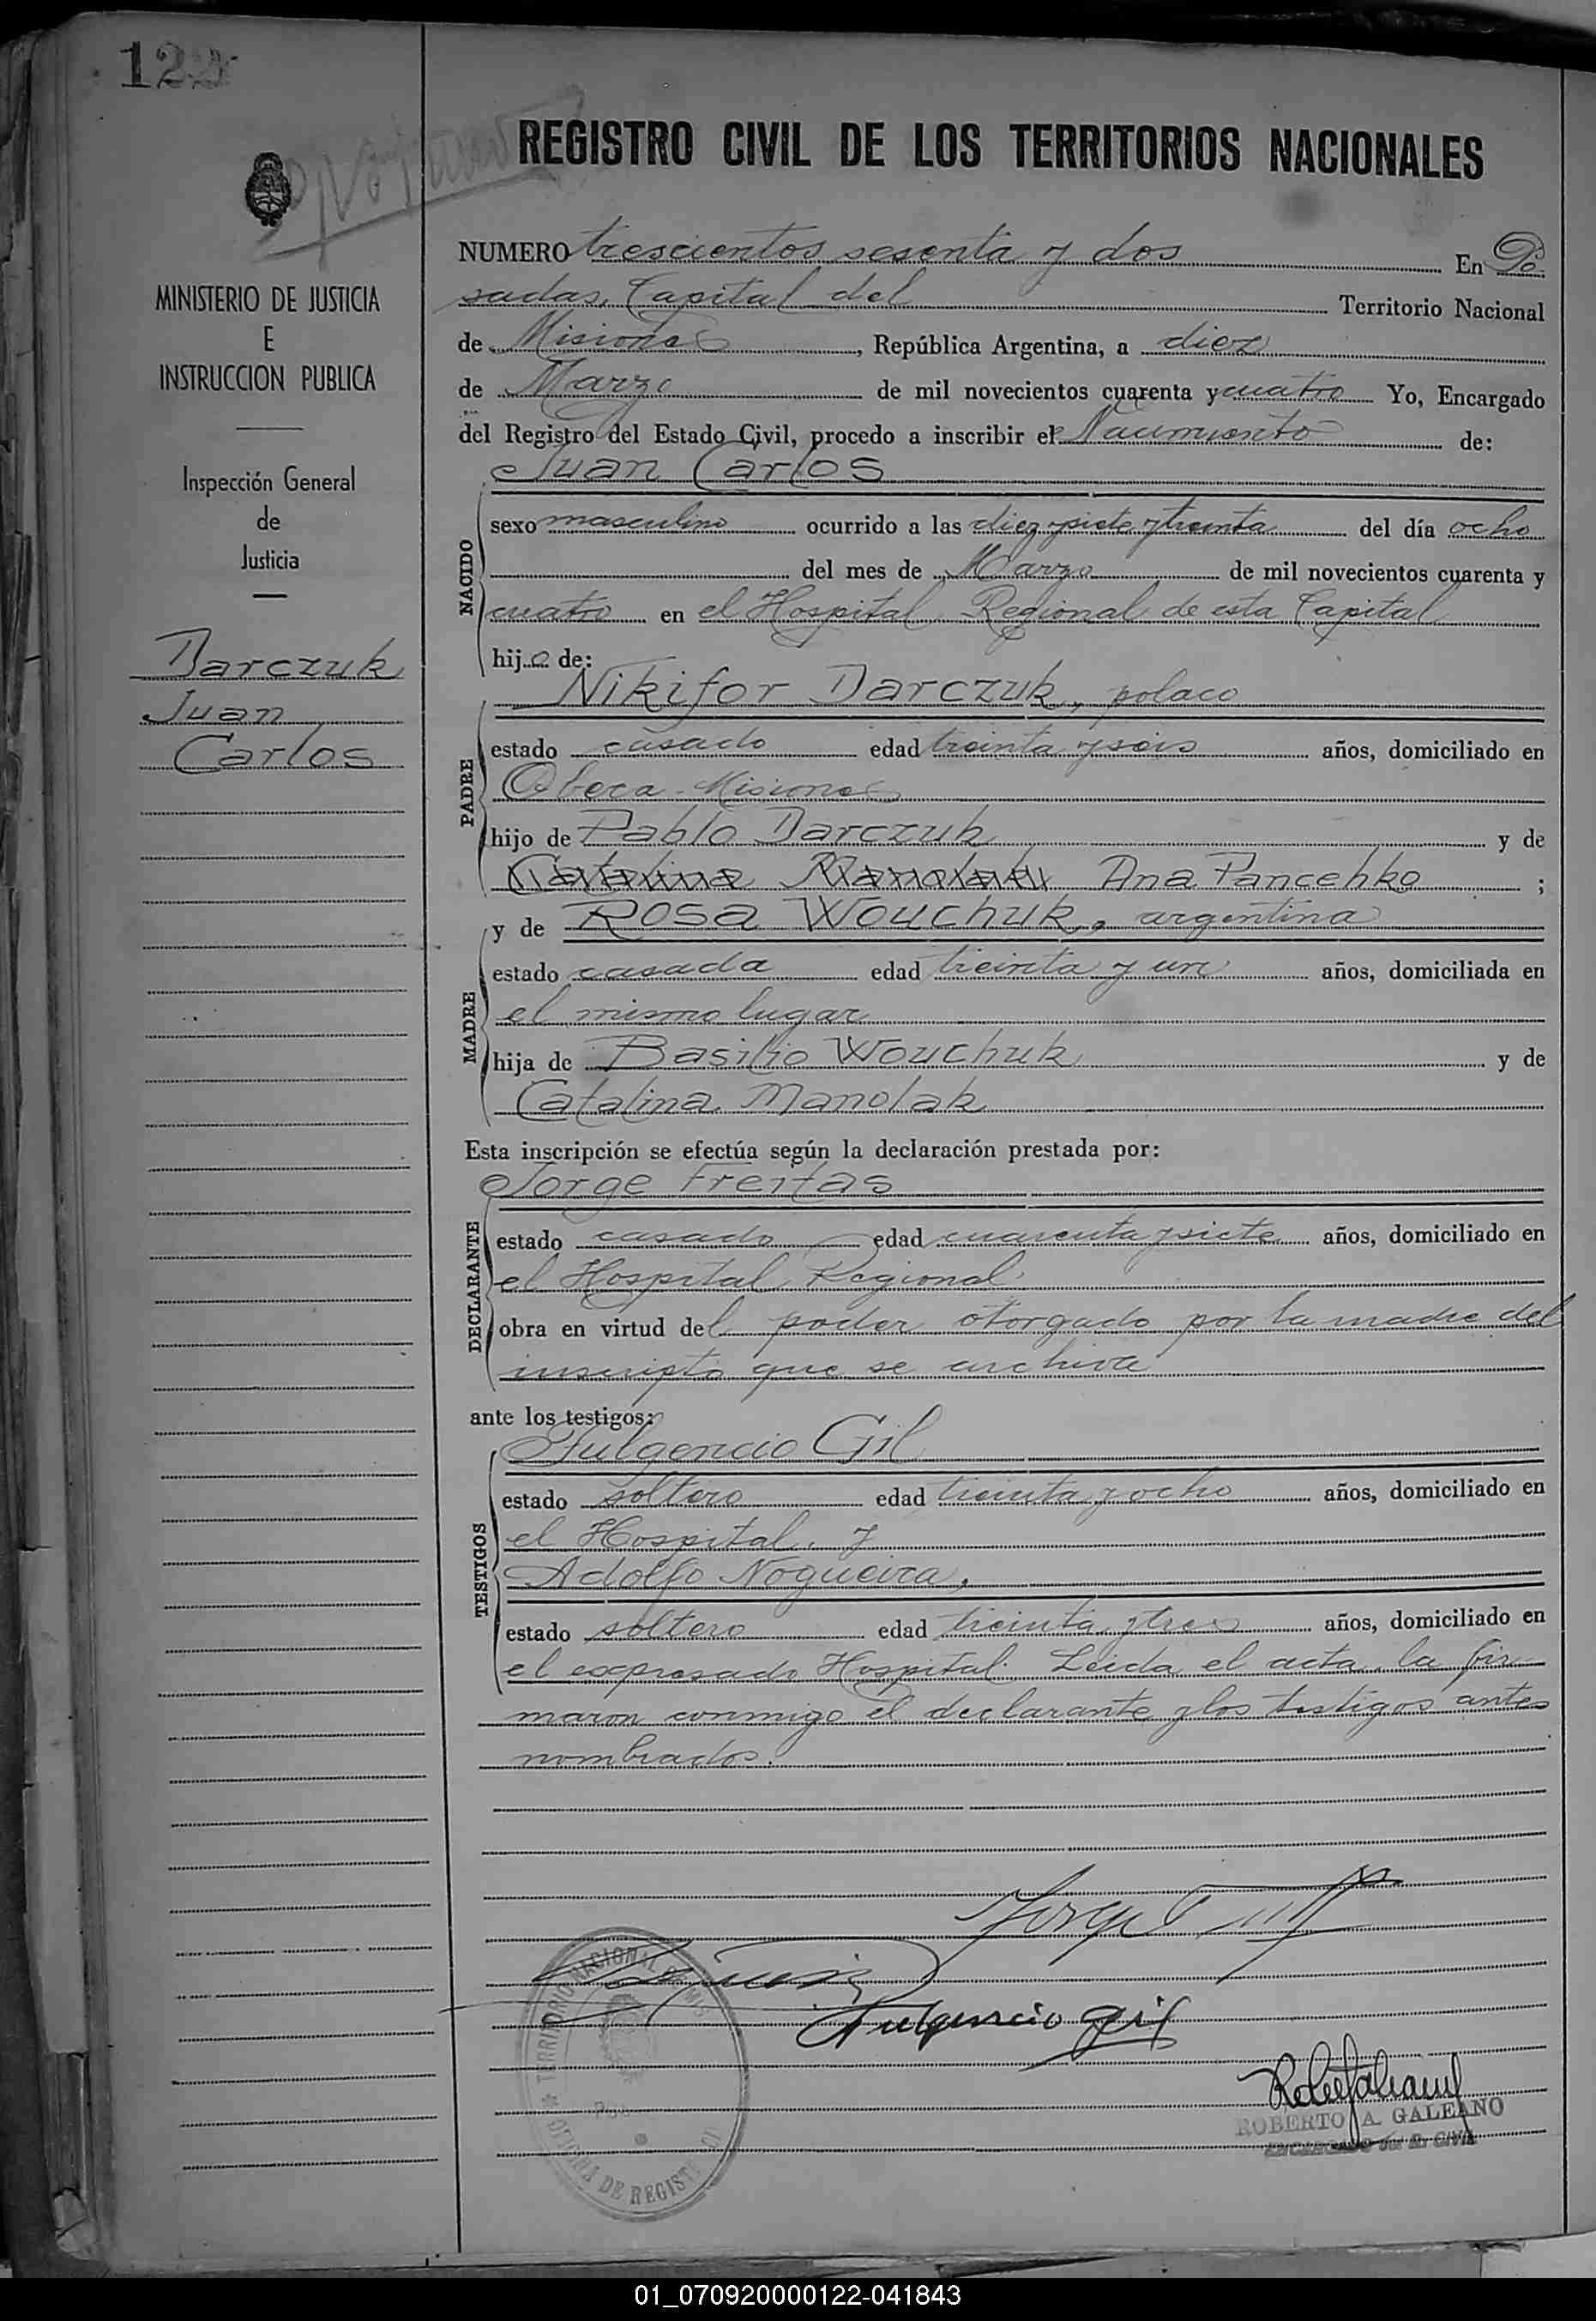 122
REGISTRO CIVIL DE LOS TERRITORIOS NACIONALES
MINISTERIO DE JUSTICIA
E
INSTRUCCION PUBLICA
Inspección General
de
Justicia
Darczuk
Juan
Carlos
NUMERO trescientos sesenta y dos En Po
sadas, Capital del Territorio Nacional
de Misiones, República Argentina, a diez
de Marzo de mil novecientos cuarenta y cuatro Yo, Encargado
del Registro del Estado Civil, procedo a inscribir el Nacimiento de:
Juan Carlos
NACIDO
sexo masculino ocurrido a las diez y siete y treinta del día ocho
del mes de Marzo de mil novecientos cuarenta y
cuatro en el Hospital Regional de esta Capital
hijo de:
Nikifor Darczuk, polaco
PADRE
estado casado edad treinta y seis años, domiciliado en
Obera - Misiones
hijo de Pablo Darczuk y de
Catalina Manolak Ana Pancehko ;
y de Rosa Wouchuk, argentina
MADRE
estado casada edad treinta y un años, domiciliada en
el mismo lugar
hija de Basilio Wouchuk y de
Catalina Manolak
Esta inscripción se efectúa según la declaración prestada por:
Jorge Freitas
DECLARANTE
estado casado edad cuarenta y siete años, domiciliado en
el Hospital Regional
obra en virtud del poder otorgado por la madre del
inscripto que se archiva
ante los testigos:
Fulgencio Gil
TESTIGOS
estado soltero edad treinta y ocho años, domiciliado en
el Hospital, y
Adolfo Nogueira,
estado soltero edad treinta y tres años, domiciliado en
el expresado Hospital. Leida el acta, la fir
maron conmigo el declarante y los testigos antes
nombrados.
Fulgencio Gil
TERRITORIO NACIONAL DE MIS
OFICINA DE REGIST
ROBERTO A. GALEANO
ENCARGADO del R. CIVIL
01_070920000122-041843